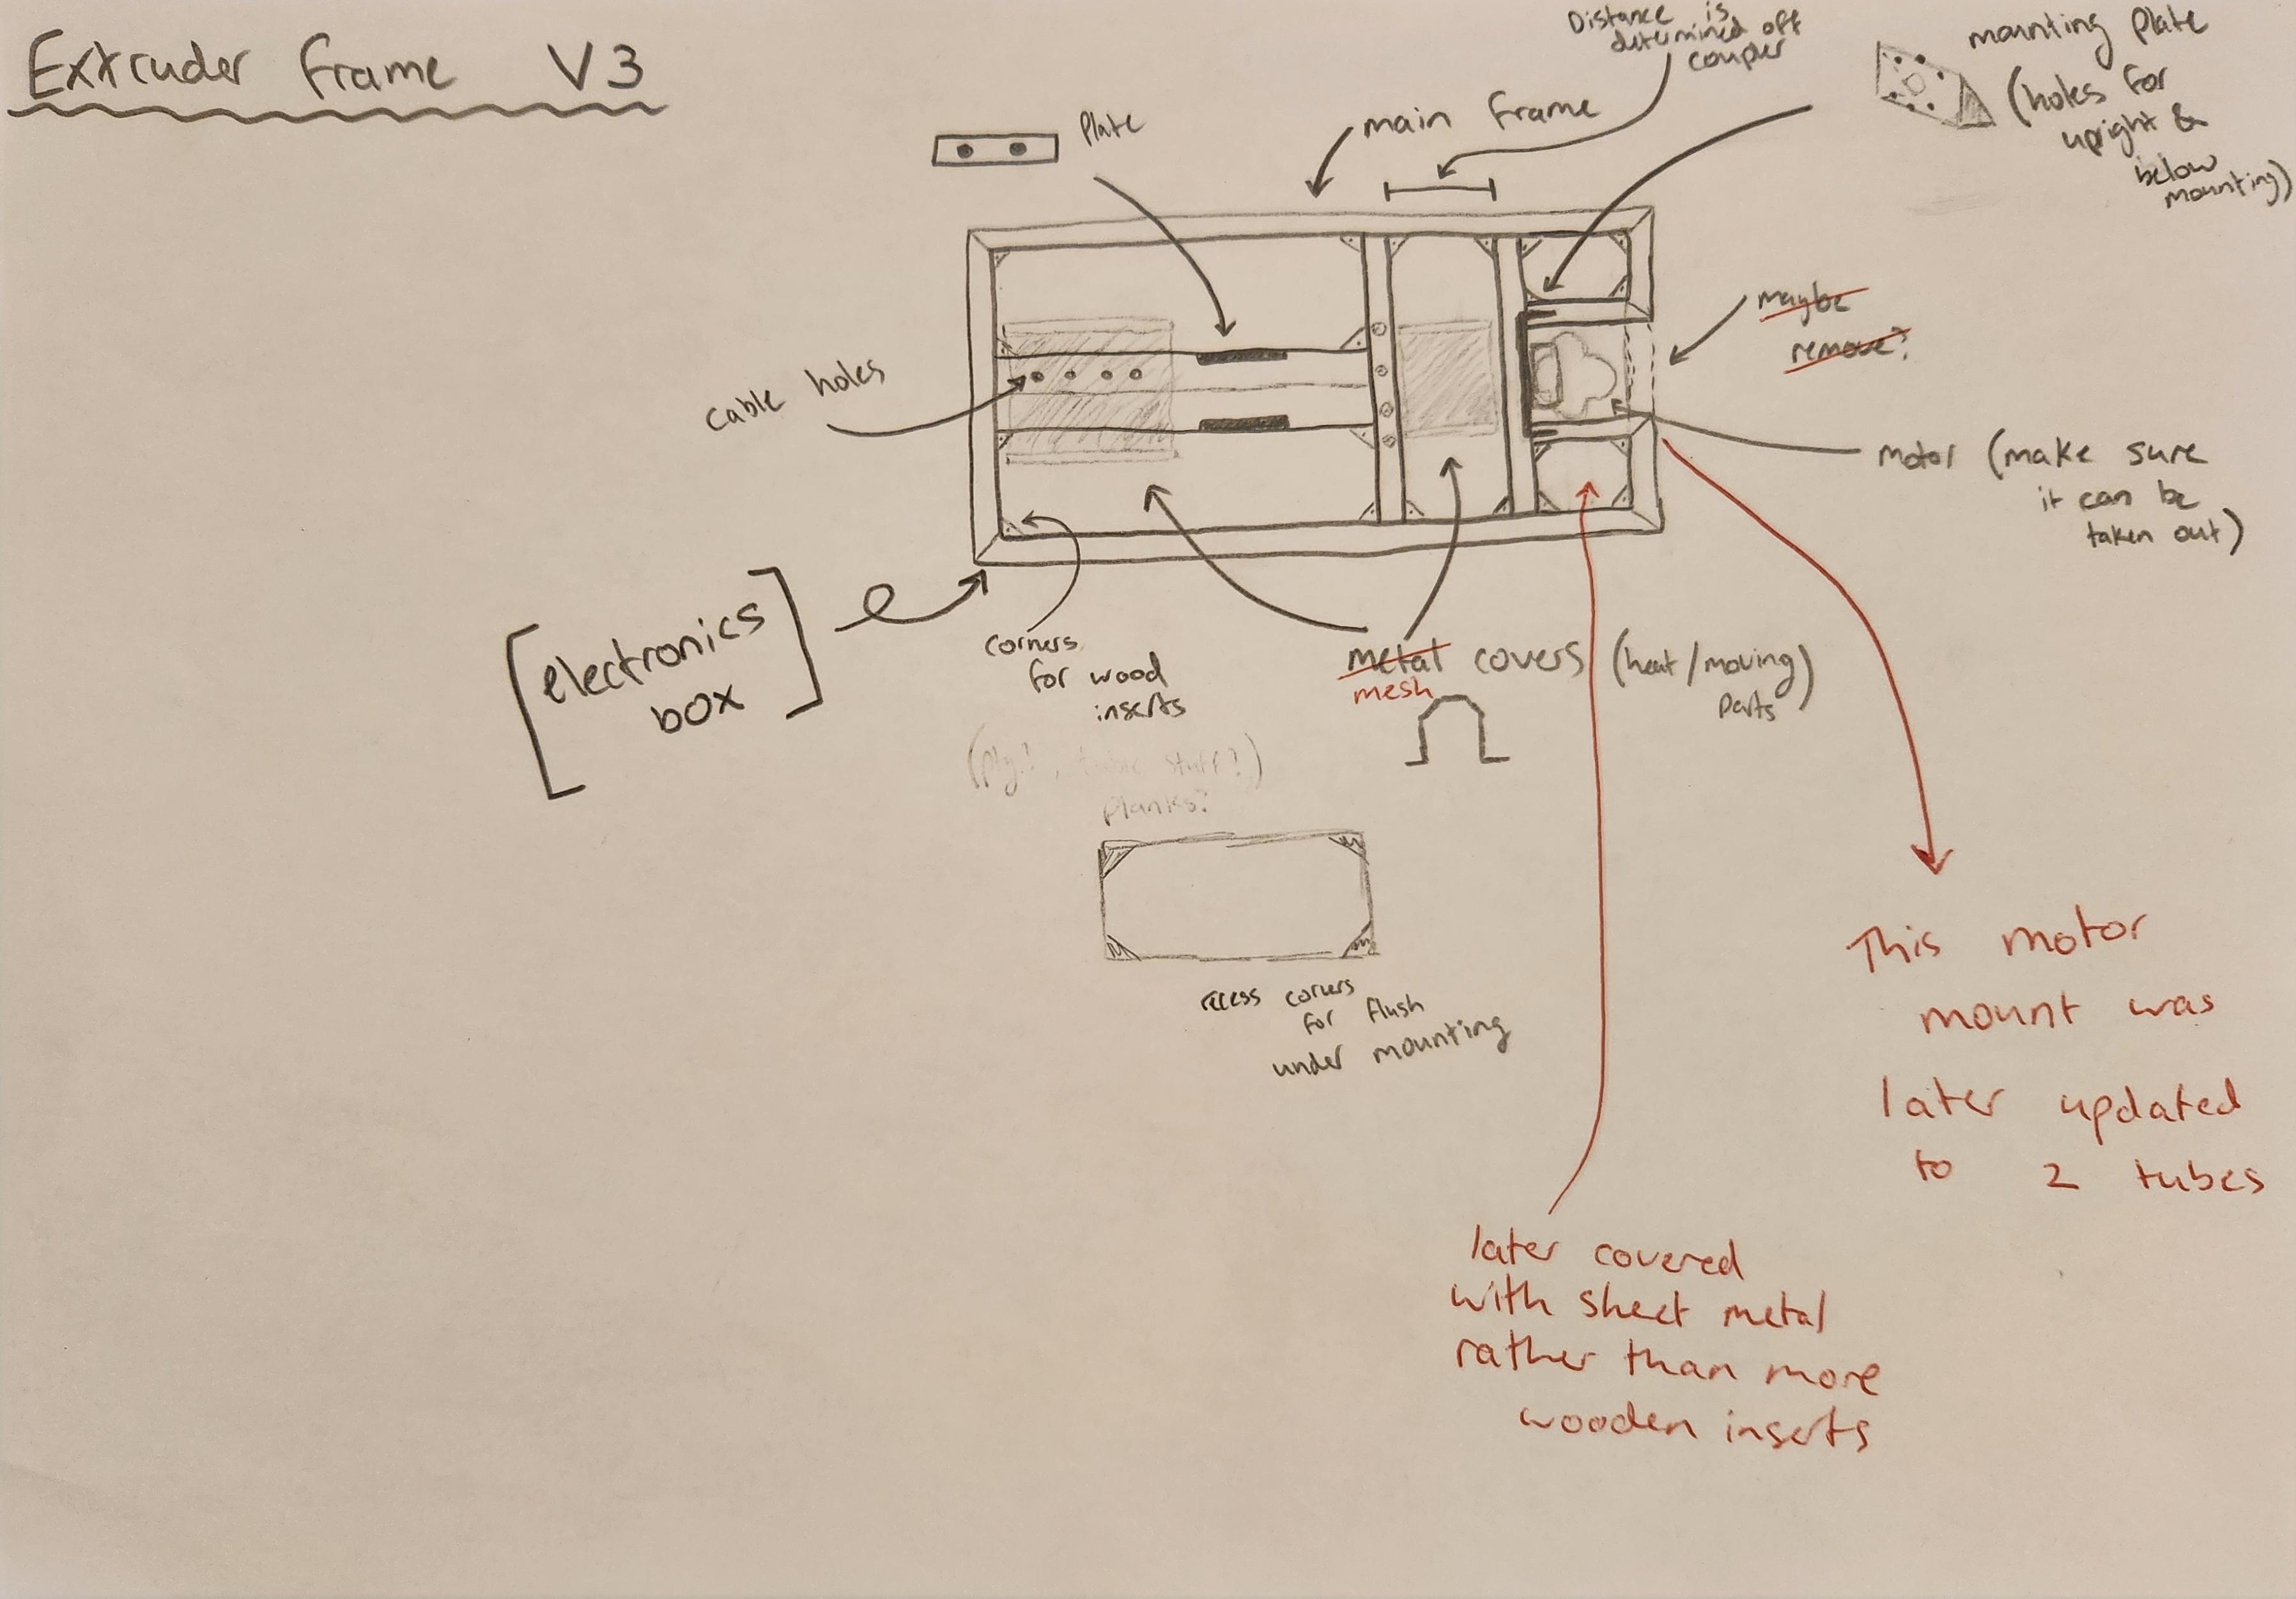 Extruder Frame V3
Distance is
determined off
coupler
mounting plate
(holes for
upright &
below
mounting)
Plate
main frame
maybe
remove?
cable holes
motor (make sure
it can be
taken out)
[electronics
box]
corners
for wood
inserts
metal covers (heat/moving)
mesh
parts
stuff?)
planks?
recess corners
for flush
under mounting
This motor
mount was
later updated
to 2 tubes
later covered
with sheet metal
rather than more
wooden inserts